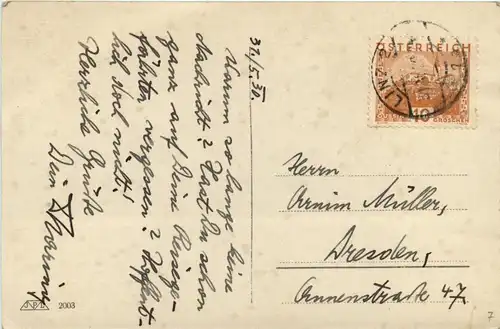 31./5. 30.
Warum so lange keine
Nachricht? Hast Du schon
ganz auf Deine Reisege-
fährten vergessen? Hoffent-
lich doch nicht!
Herzliche Grüße
Dein
2003
ÖSTERREICH
10
GROSCHEN
LINZ 2
Herrn
Armin Müller,
Dresden,
Annenstraße 47
7